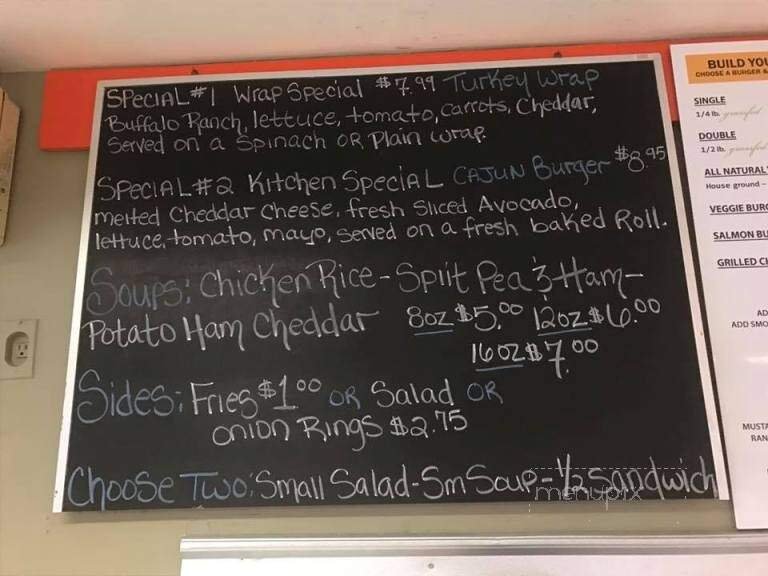 SPECIAL #1 Wrap Special $7.99 Turkey Wrap
Buffalo Ranch, lettuce, tomato, carrots, Cheddar,
Served on a Spinach OR Plain wrap.
SPECIAL #2 Kitchen Special CAJUN Burger $8.95
melted Cheddar Cheese, fresh Sliced Avocado,
lettuce, tomato, mayo, served on a fresh baked Roll.
Soups: Chicken Rice - Split Pea & Ham -
Potato Ham Cheddar 8oz $5.00 12oz $6.00
16oz $7.00
Sides: Fries $1.00 OR Salad OR
Onion Rings $2.75
Choose Two: Small Salad - Sm Soup - 1/2 Sandwich
menupix
BUILD YOU
CHOOSE A BURGER &
SINGLE
1/4 lb. grassfed
DOUBLE
1/2 lb. grassfed
ALL NATURAL
House ground –
VEGGIE BURG
SALMON BU
GRILLED CH
AD
ADD SMO
MUSTA
RAN